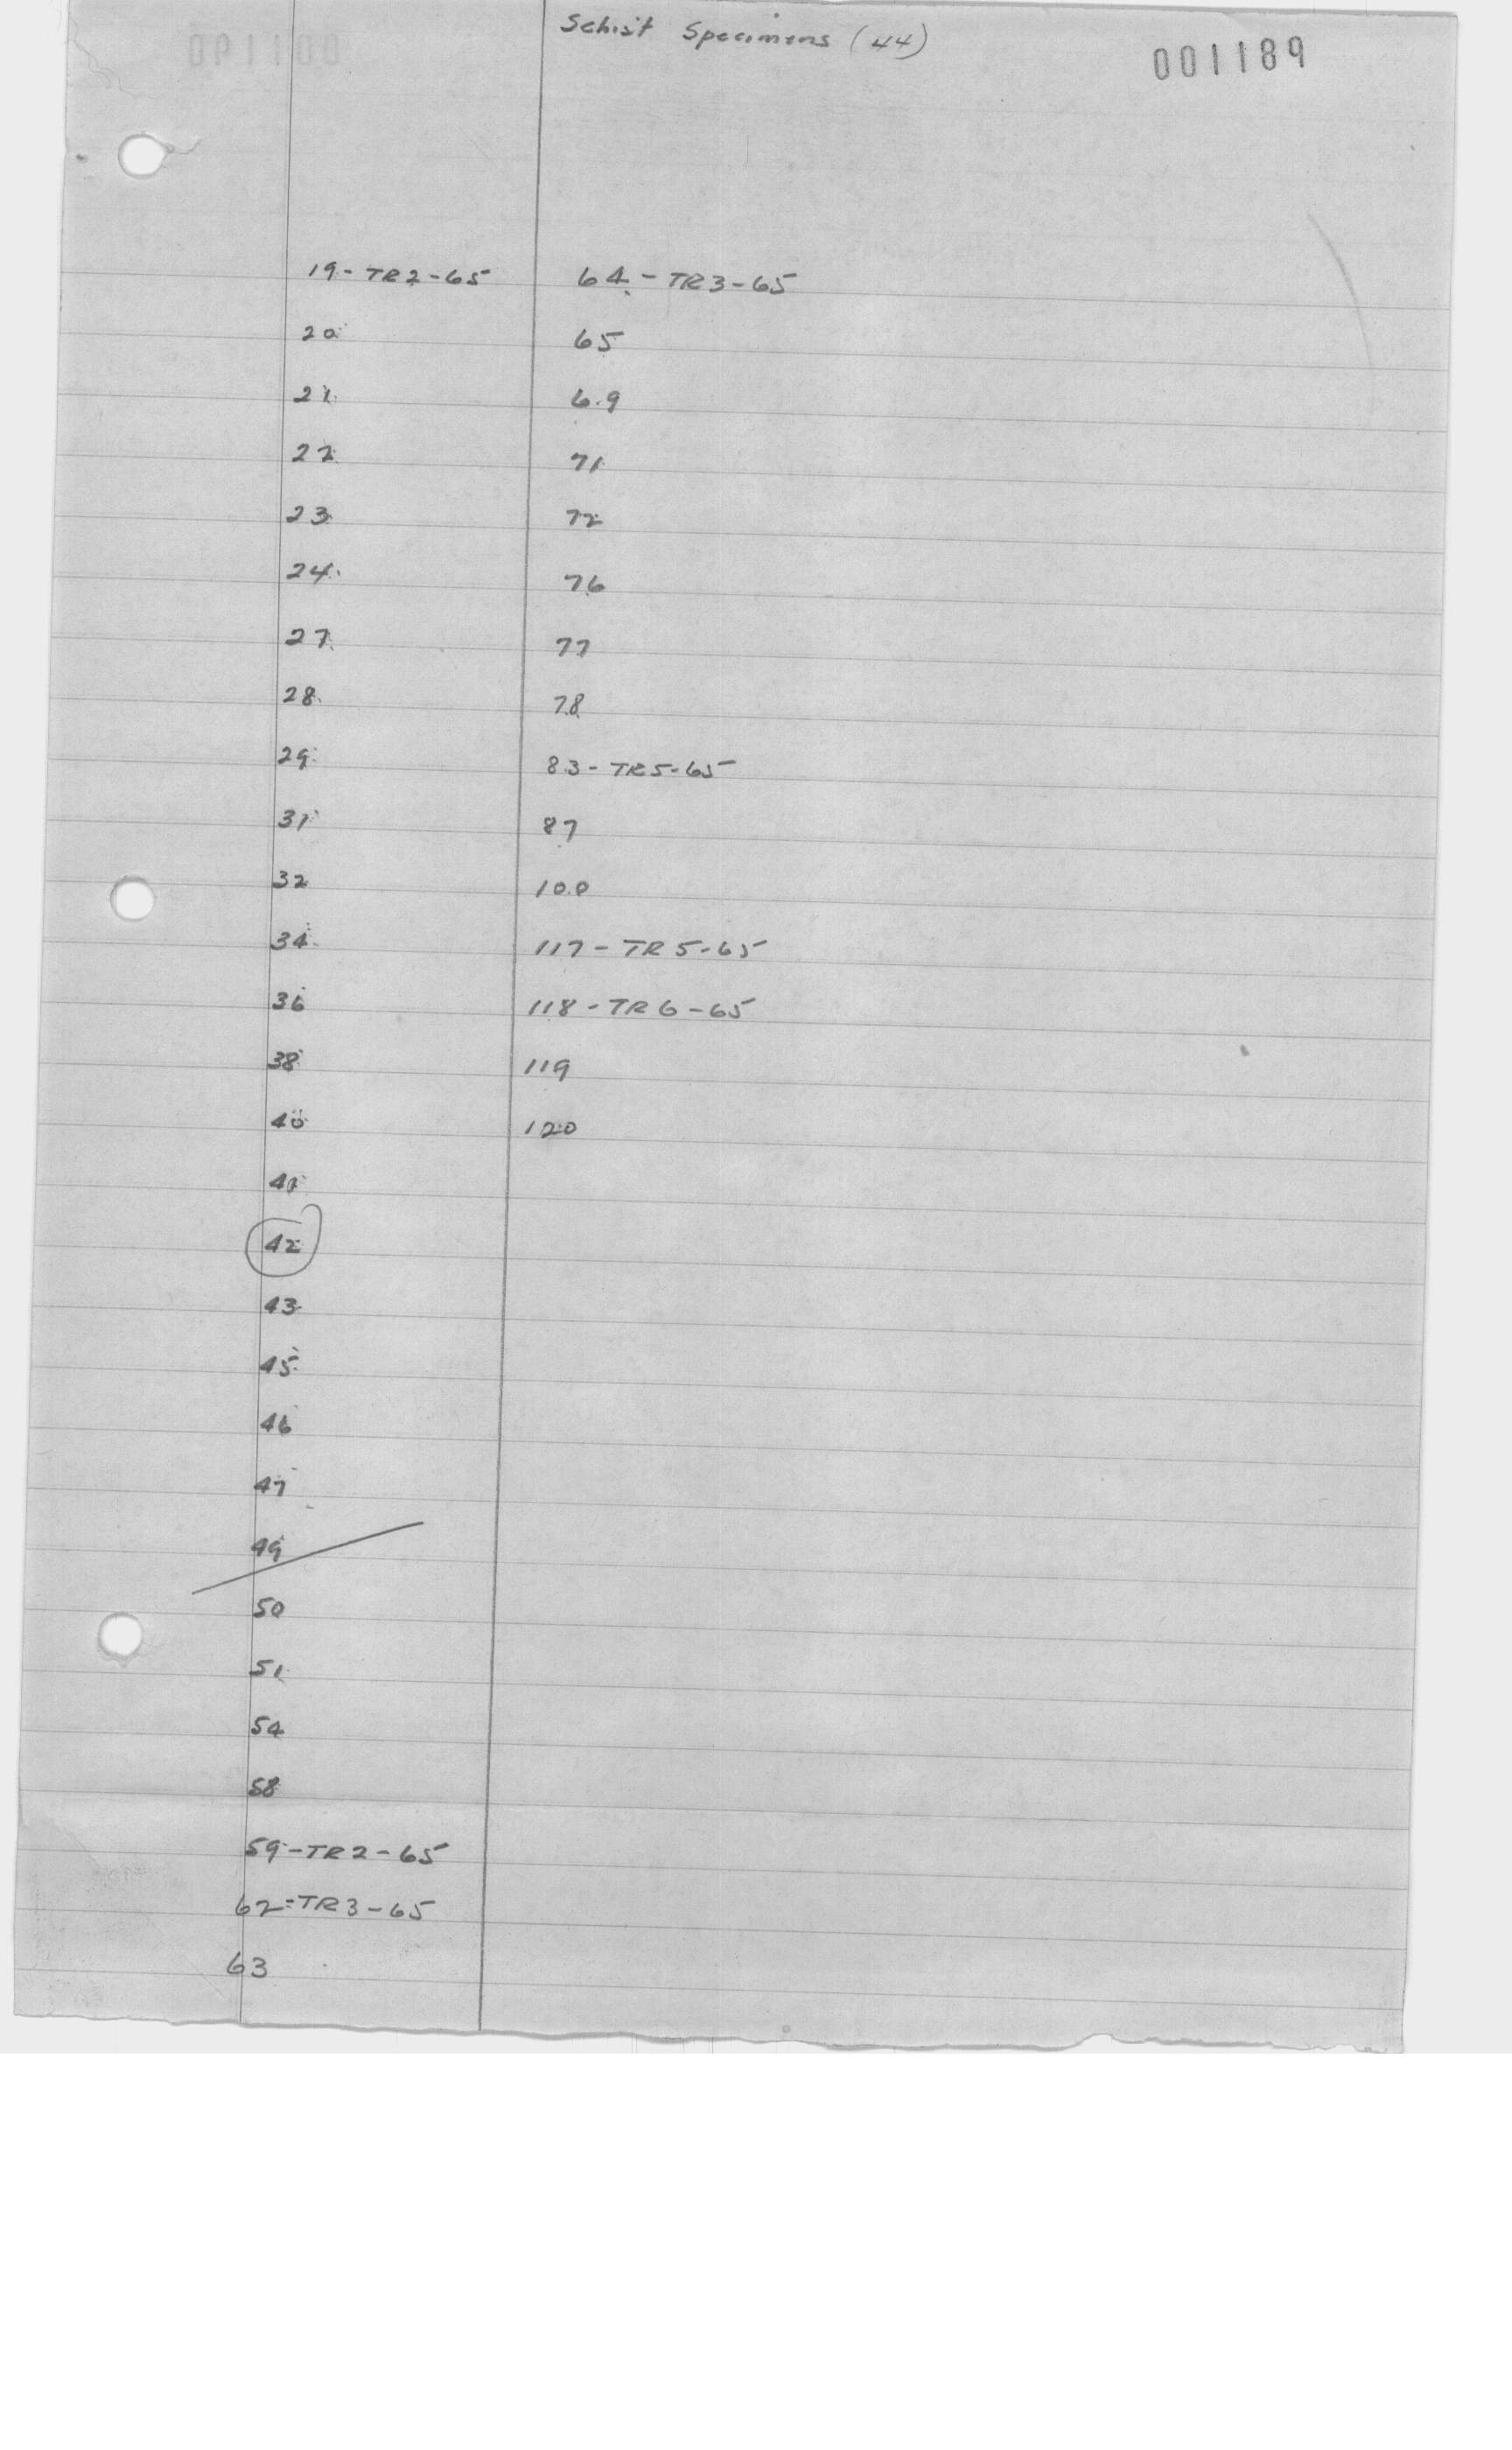 Schist Specimens (44)
001189
19 - TR2-65
20
21
22
23
24
27
28
29
31
32
34
36
38
40
41
42
43
45
46
47
49
50
51
54
58
59-TR2-65
62-TR3-65
63
64 - TR3-65
65
69
71
72
76
77
78
83 - TR5-65
87
100
117 - TR5-65
118 - TR6-65
119
120